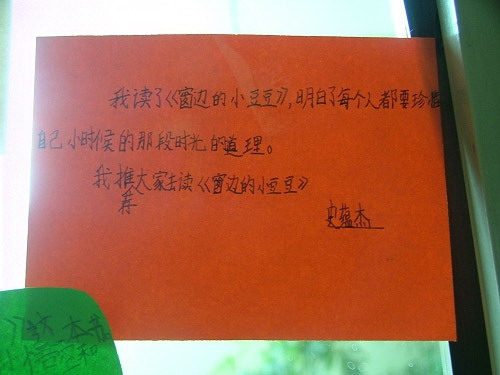 我读了《窗边的小豆豆》,明白了每个人都要珍惜
自己小时候的那段时光的道理。
我推荐大家去读《窗边的小豆豆》
史蕴杰
这本书